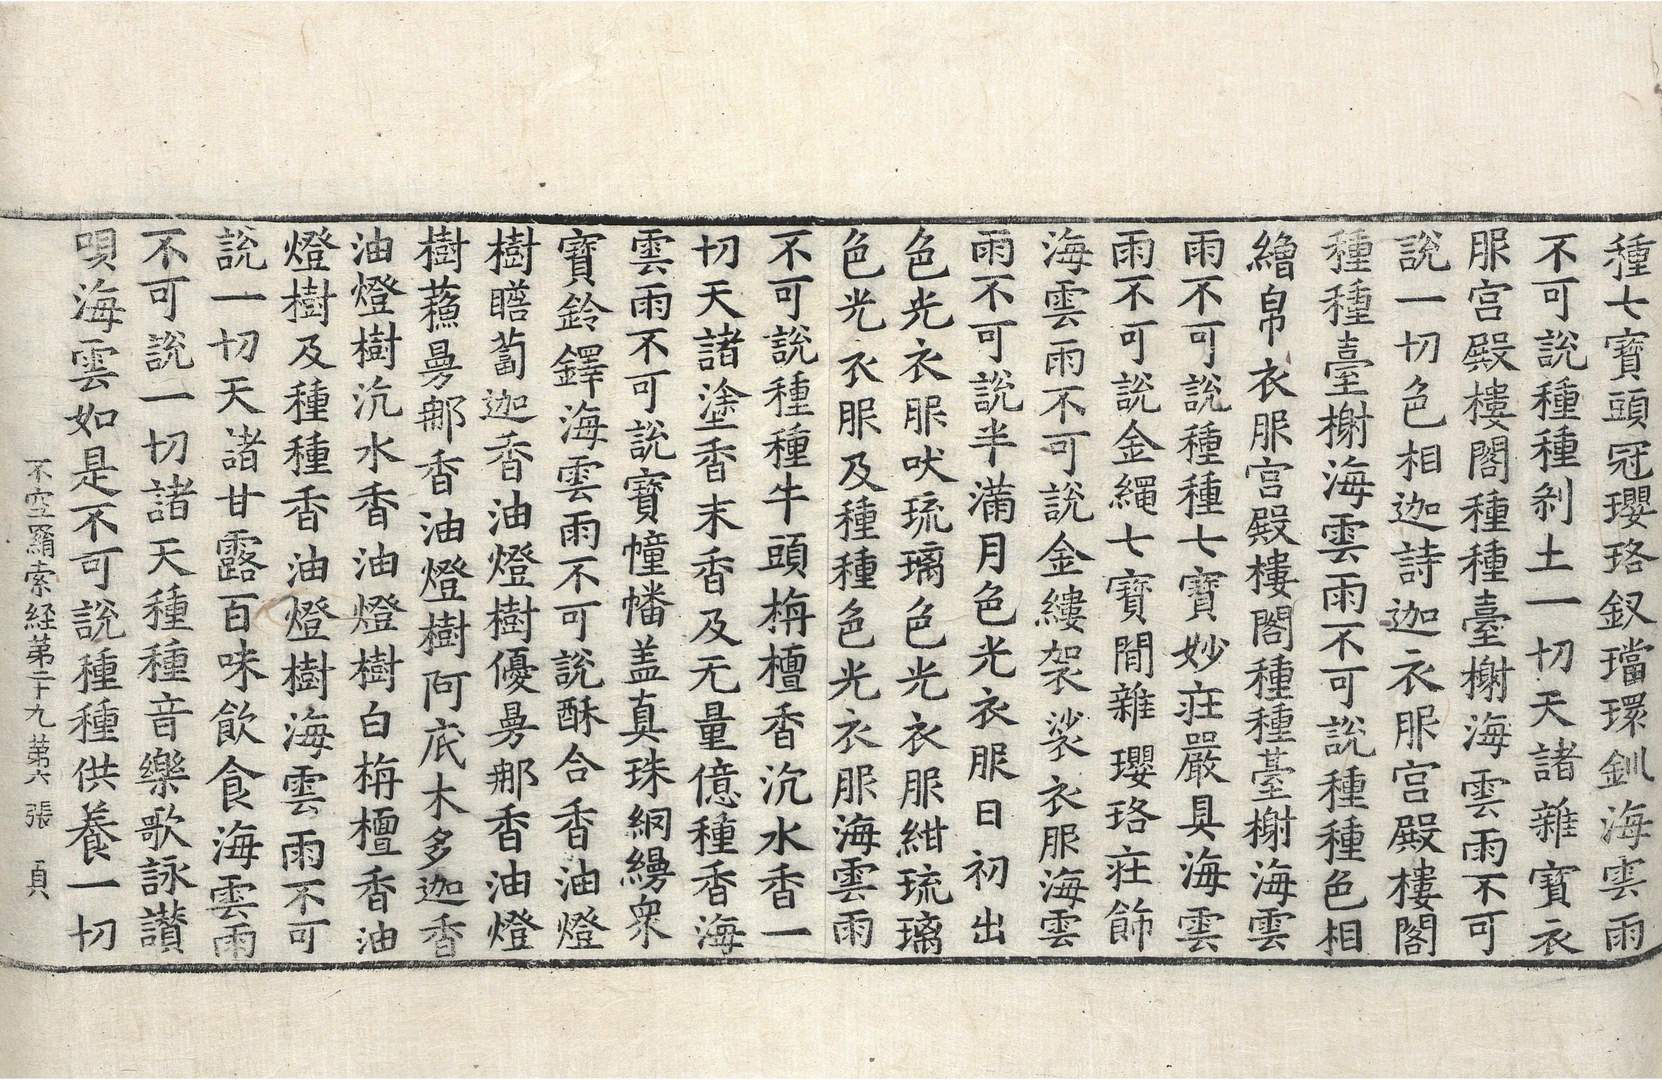 種七寶頭冠瓔珞釵璫環釧海雲雨
不可說種種剎土一切天諸雜寶衣
服宮殿樓閣種種臺榭海雲雨不可
說一切色相迦詩迦衣服宮殿樓閣
種種臺榭海雲雨不可說種種色相
繒帛衣服宮殿樓閣種種臺榭海雲
雨不可說種種七寶妙莊嚴具海雲
雨不可說金繩七寶間雜瓔珞莊飾
海雲雨不可說金縷袈裟衣服海雲
雨不可說半滿月色光衣服日初出
色光衣服吠琉璃色光衣服紺琉璃
色光衣服及種種色光衣服海雲雨
不可說種種牛頭栴檀香沉水香一
切天諸塗香末香及无量億種香海
雲雨不可說寶幢幡盖真珠網縵衆
寶鈴鐸海雲雨不可說酥合香油燈
樹瞻蔔迦香油燈樹優曇郍香油燈
樹蘓曼郍香油燈樹阿底木多迦香
油燈樹沉水香油燈樹白栴檀香油
燈樹及種種香油燈樹海雲雨不可
說一切天諸甘露百味飲食海雲雨
不可說一切諸天種種音樂歌詠讃
唄海雲如是不可說種種供養一切
不空羂索経第二十九 第六張 貞